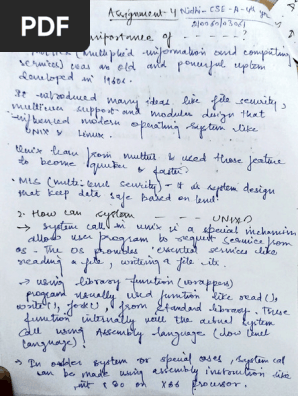 PDF
Assignment-4 Nidhi-CSE-A-4th yr
importance of - - - - - - ?
(multiplexed information and computing
services) was an old and powerful system
developed in 1960s.
It introduced many ideas like file security,
multiuser support and modular design that
influenced modern operating system like
UNIX & Linux.
Unix learn from multics & used those feature
to become quicker & faster.
MLS (multi-level security) - It is system design
that keep data safe based on level.
2. How can system - - - - - UNIX?
→ System call in unix is a special mechanism
allows user program to request service from
OS - The OS provides essential services like
reading a file, writing a file etc.
→ Using library function (wrappers)
program usually used function like read(),
write(), fork(), from standard library. These
function internally calls the actual system
call using Assembly language (low level
language).
→ In older system or special cases, system call
can be made using assembly instruction like
int 80 on X86 processor.